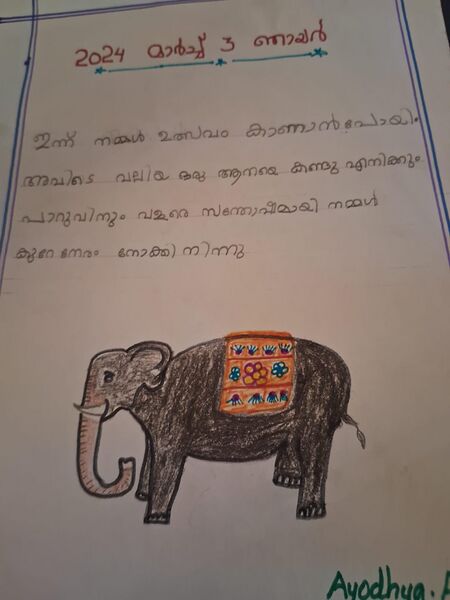 2024 മാർച്ച് 3 ഞായർ
ഇന്ന് നമ്മൾ ഉത്സവം കാണാൻ പോയി.
അവിടെ വലിയ ഒരു ആനയെ കണ്ടു എനിക്കും
പാറുവിനും വളരെ സന്തോഷമായി നമ്മൾ
കുറേ നേരം നോക്കി നിന്നു
Ayodhya. A